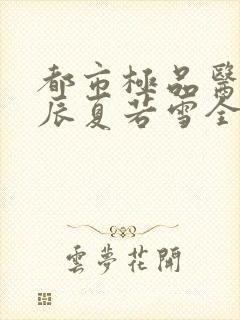 都市極品醫
辰夏若雪全
雲夢花開